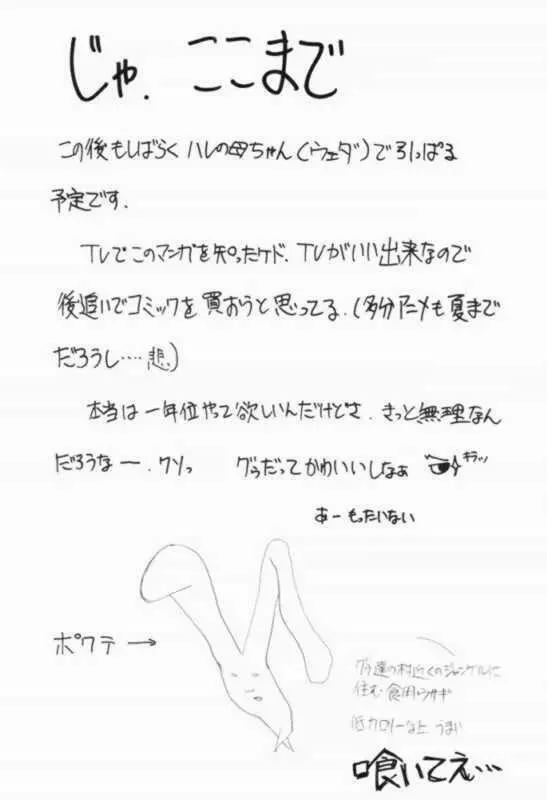 じゃ、ここまで
この後もしばらくハレの母ちゃん(ウェダ)で引っぱる
予定です.
TVでこのマンガを知ったケド、TVがいい出来なので
後追いでコミックを買おうと思ってる.(多分アニメも夏まで
だろうし‥‥悲.)
本当は一年位やって欲しいんだけどさ.きっと無理なん
だろうなー.クソっ グゥだってかわいいしなぁ キラッ
あーもったいない
ポクテ→
グゥ達の村近くのジャングルに
住む食用ウサギ
低カロリーな上うまい
喰いてえ…